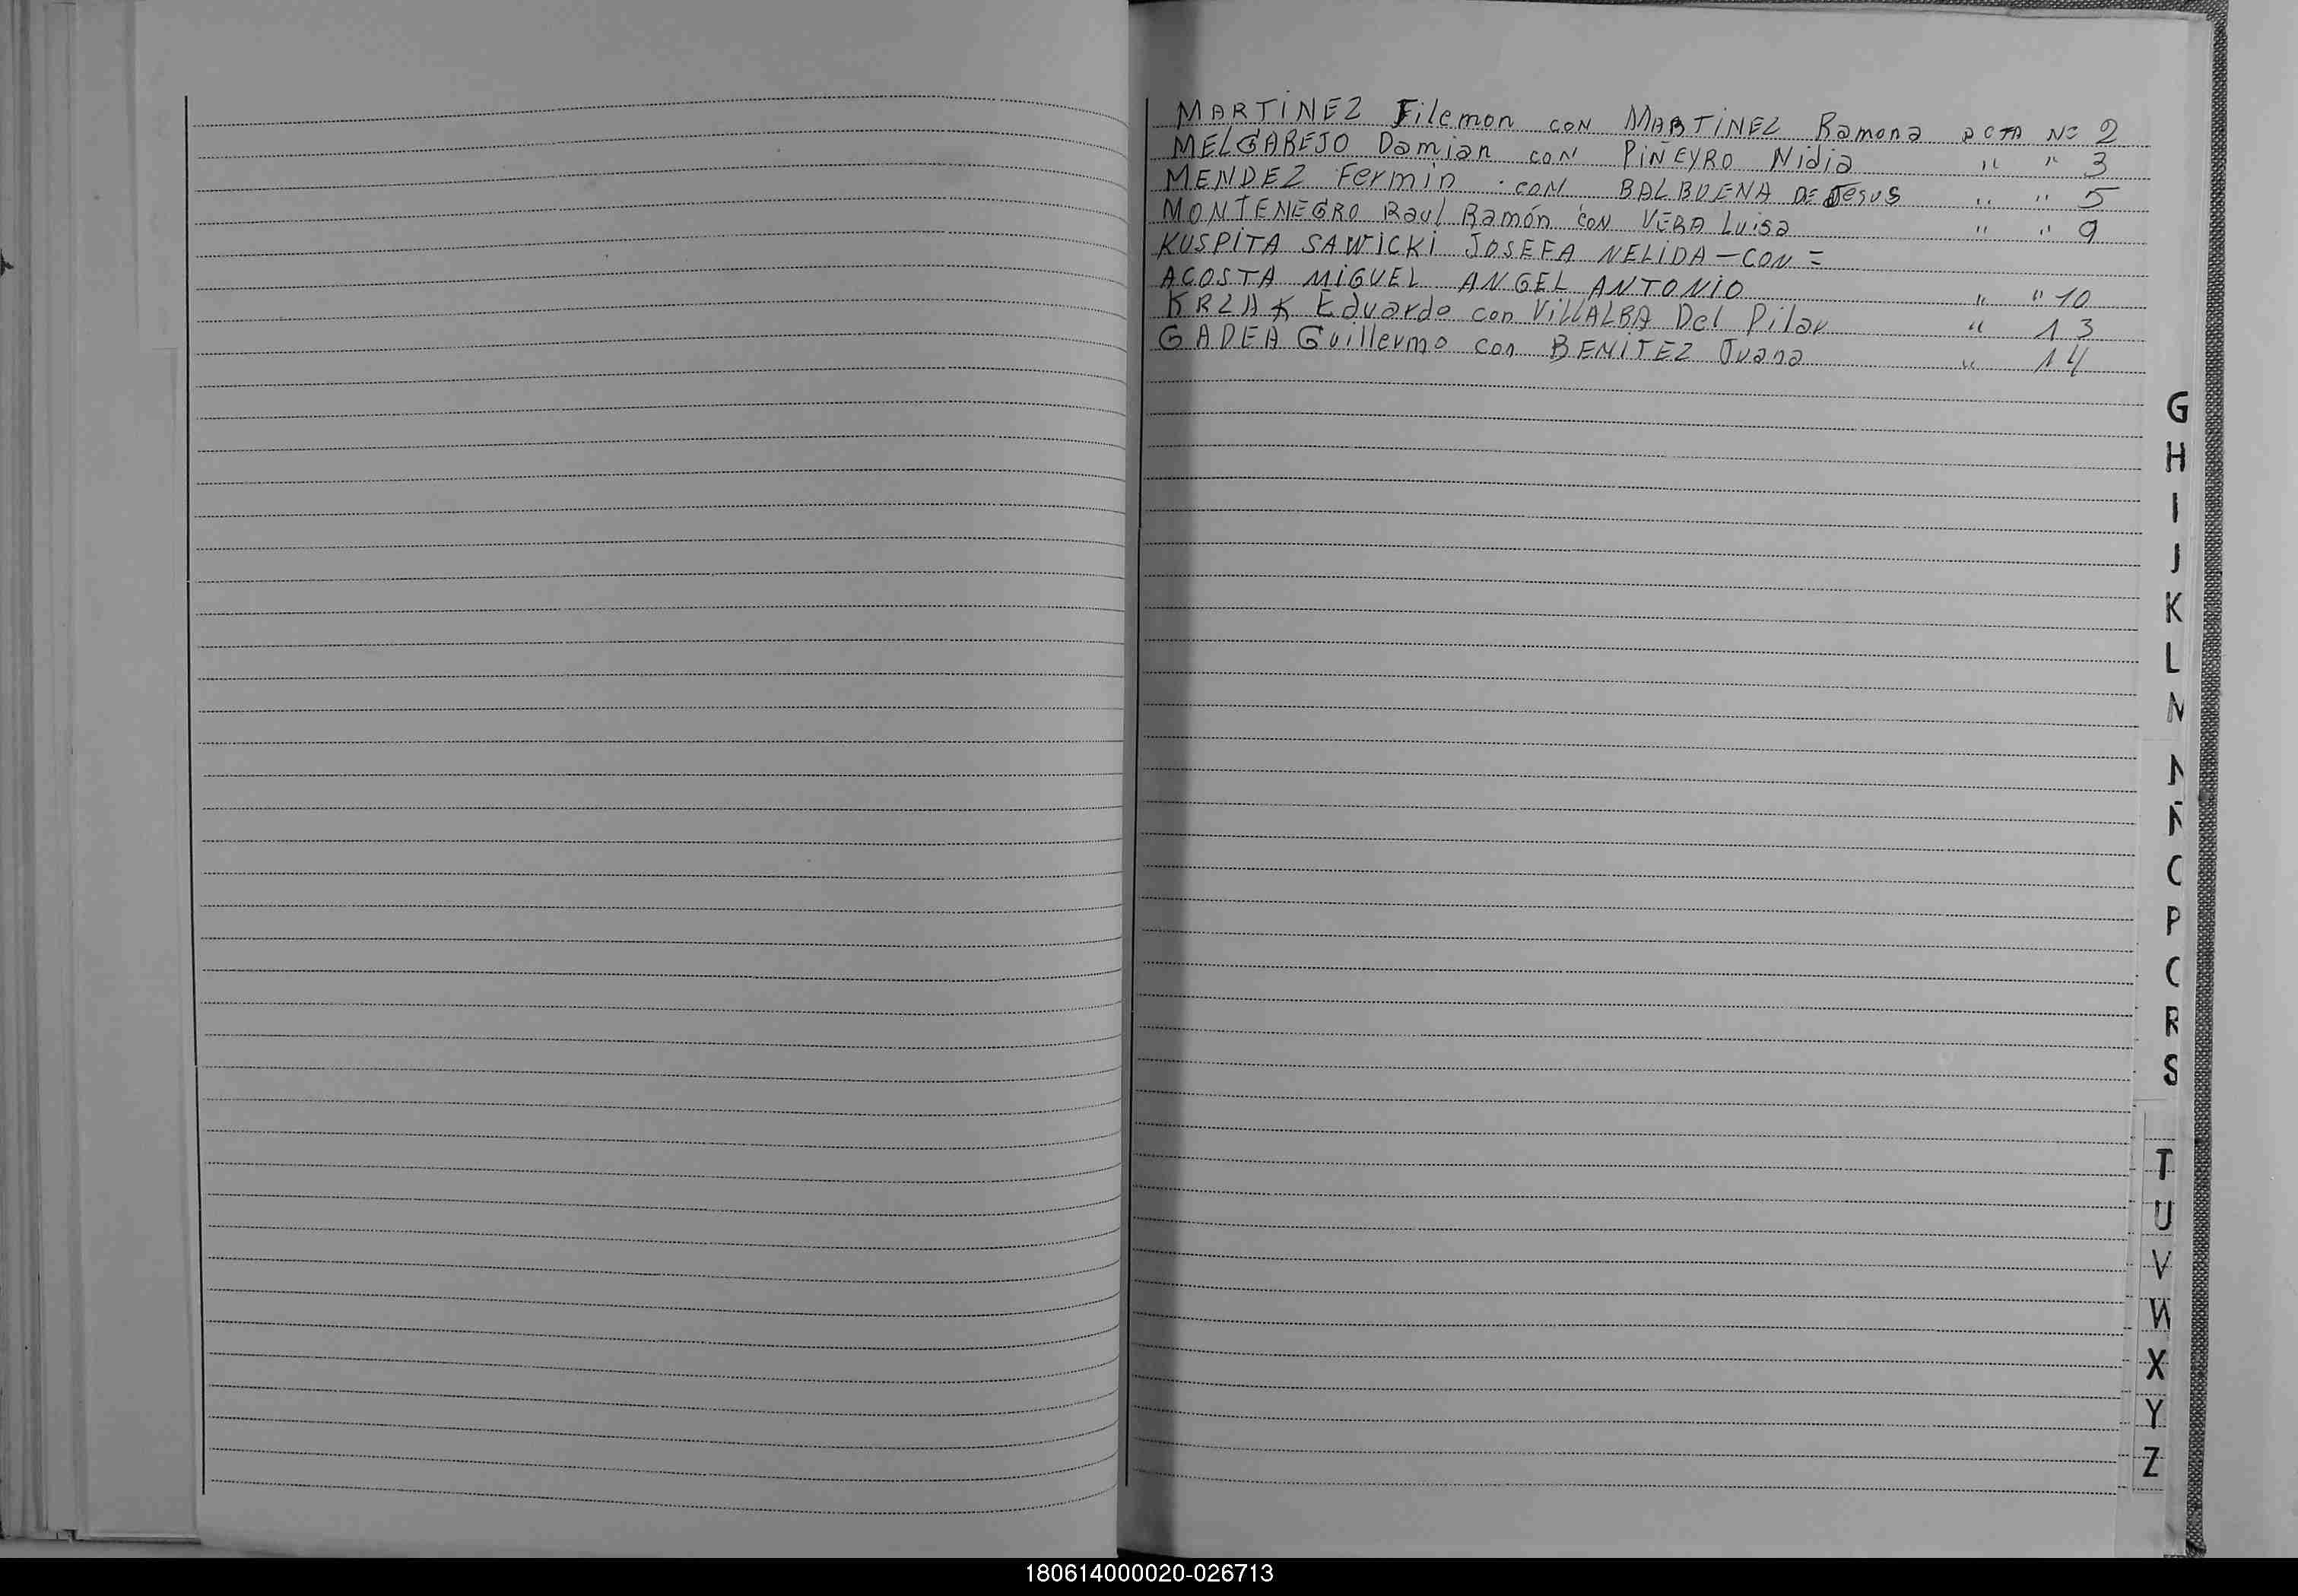 MARTINEZ Filemon con MARTINEZ Ramona ACTA Nº 2
MELGAREJO Damian con PIÑEYRO Nidia " " 3
MENDEZ Fermin con BALBUENA DE Jesus " " 5
MONTENEGRO Raul Ramón con VERA Luisa " " 9
KUSPITA SAWICKI JOSEFA NELIDA – CON =
ACOSTA MIGUEL ANGEL ANTONIO " " 10
KRZAK Eduardo con VILLALBA Del Pilar " 13
GADEA Guillermo con BENITEZ Juana " 14
G
H
I
J
K
L
P
R
S
T
U
V
W
X
Y
Z
180614000020-026713